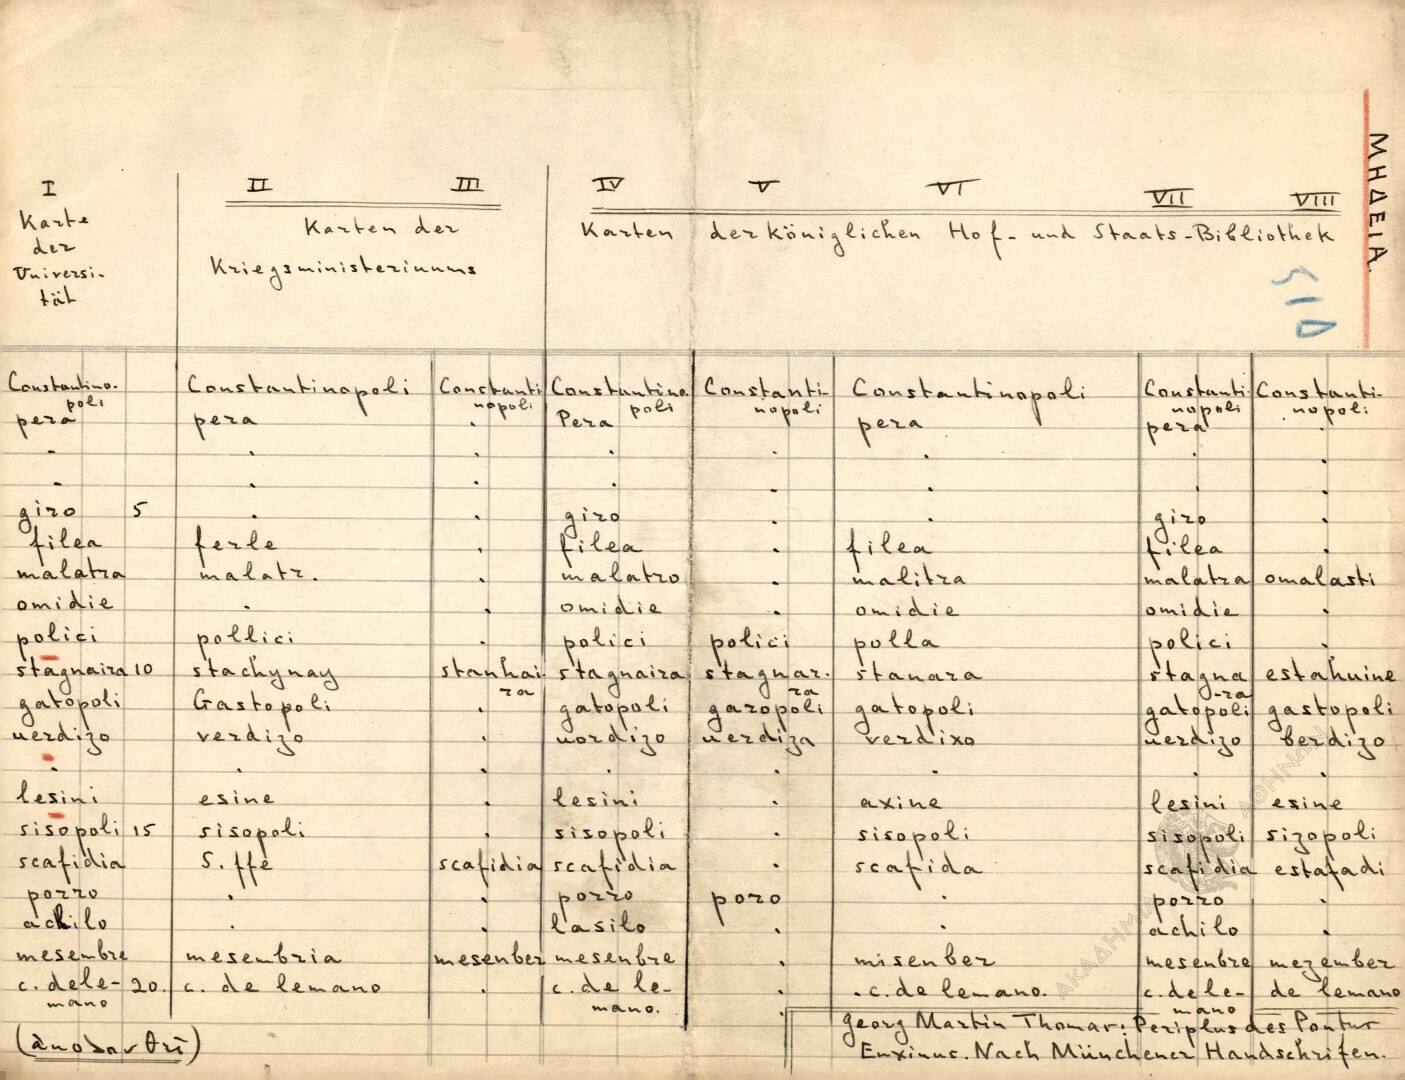 ΜΗΔΕΙΑ.
I II III IV V VI VII VIII
Karte der Universi-tät
Karten der Kriegsministeriums
Karten der königlichen Hof- und Staats-Bibliothek
510
Constantino-poli Constantinopoli Constanti nopoli Constantino-poli Constanti-nopoli Constantinopoli Constanti-nopoli Constanti-nopoli
pera pera . Pera pera pera .
. . . . . . . .
. . . . . . . .
giro 5 . . giro . . giro .
filea ferle . filea . filea filea .
malatra malatr. . malatro . malitra malatra omalasti
omidie . . omidie . omidie omidie .
polici pollici . polici polici polla polici .
stagnaira 10 stachynay stanhai-ra stagnaira stagnar-ra stanara stagna-ra estahuine
gatopoli Gastopoli . gatopoli garopoli gatopoli gatopoli gastopoli
uerdizo verdizo . uordizo uerdiza verdixo uerdizo berdizo
. . . . . . . .
lesini esine . lesini . axine lesini esine
sisopoli 15 sisopoli . sisopoli . sisopoli sisopoli sizopoli
scafidia S. ffe scafidia scafidia . scafida scafidia estafadi
porro . . porro poro . porro .
achilo . . lasilo . . achilo .
mesembre mesembria mesenber mesenbre . misenber mesenbre mezember
c. dele-mano 20. c. de lemano . c. de le-mano. . . c. de lemano. c. de le-mano de lemano
Georg Martin Thomas: Periplus des Pontus
Euxinus. Nach Münchener Handschrifen.
ΑΚΑΔΗΜΙΑ ΑΘΗΝΩΝ